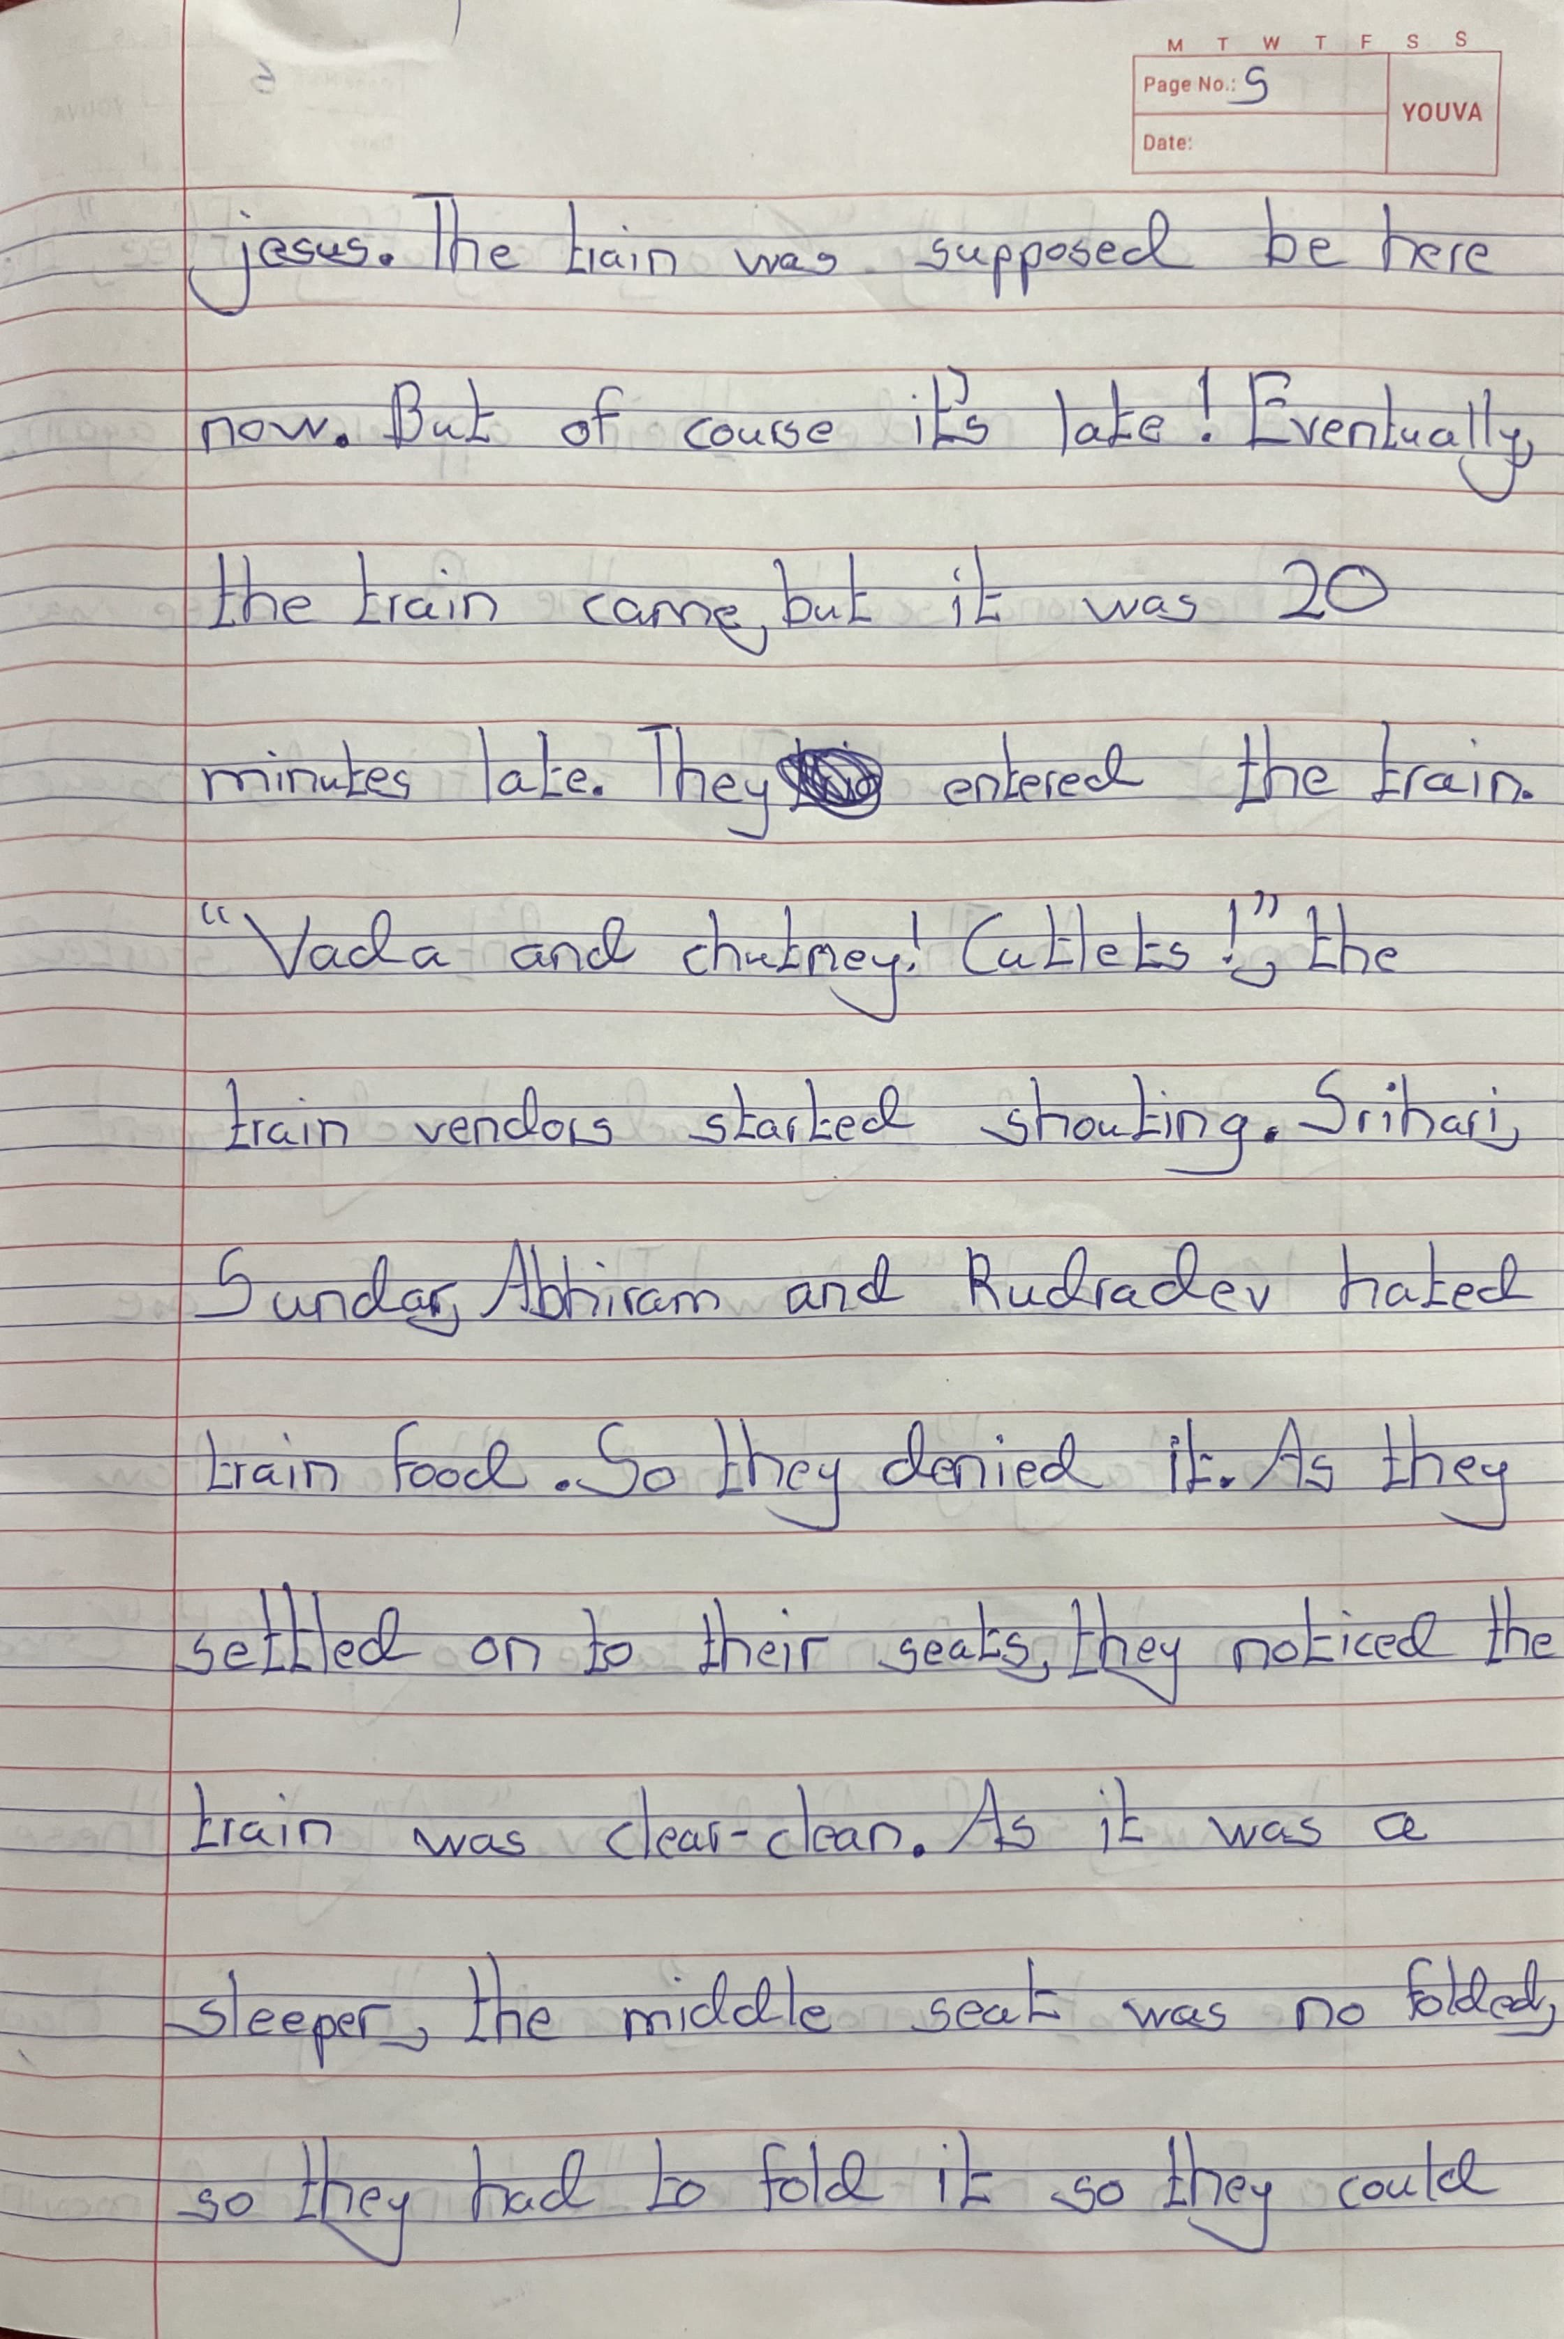 M T W T F S S
Page No.: 5
YOUVA
Date:
jesus. The train was supposed be here
now. But of course it's late! Eventually,
the train came, but it was 20
minutes late. They entered the train.
"Vada and chutney! Cutlets!", the
train vendors started shouting. Srihari,
Sundar, Abhiram and Rudradev hated
train food. So they denied it. As they
settled on to their seats, they noticed the
train was clear-clean. As it was a
sleeper, the middle seat was no folded,
so they had to fold it so they could